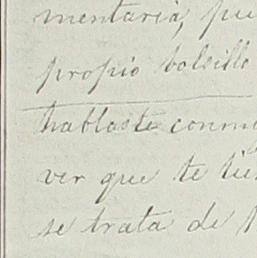 mentaria, pu
propio bolsillo
hablaste conm
ver que te tie
se trata de